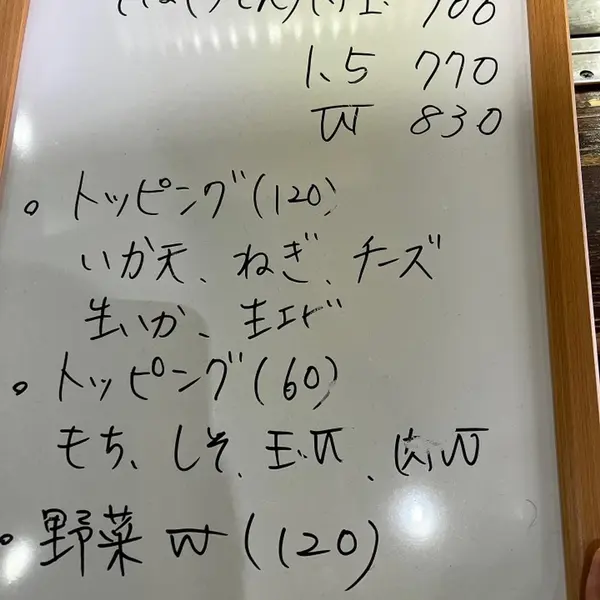 700
1、5 770
W 830
。トッピング(120)
いか天、ねぎ、チーズ
生いか、生エビ
。トッピング(60)
もち、しそ、玉W、肉W
。野菜W(120)